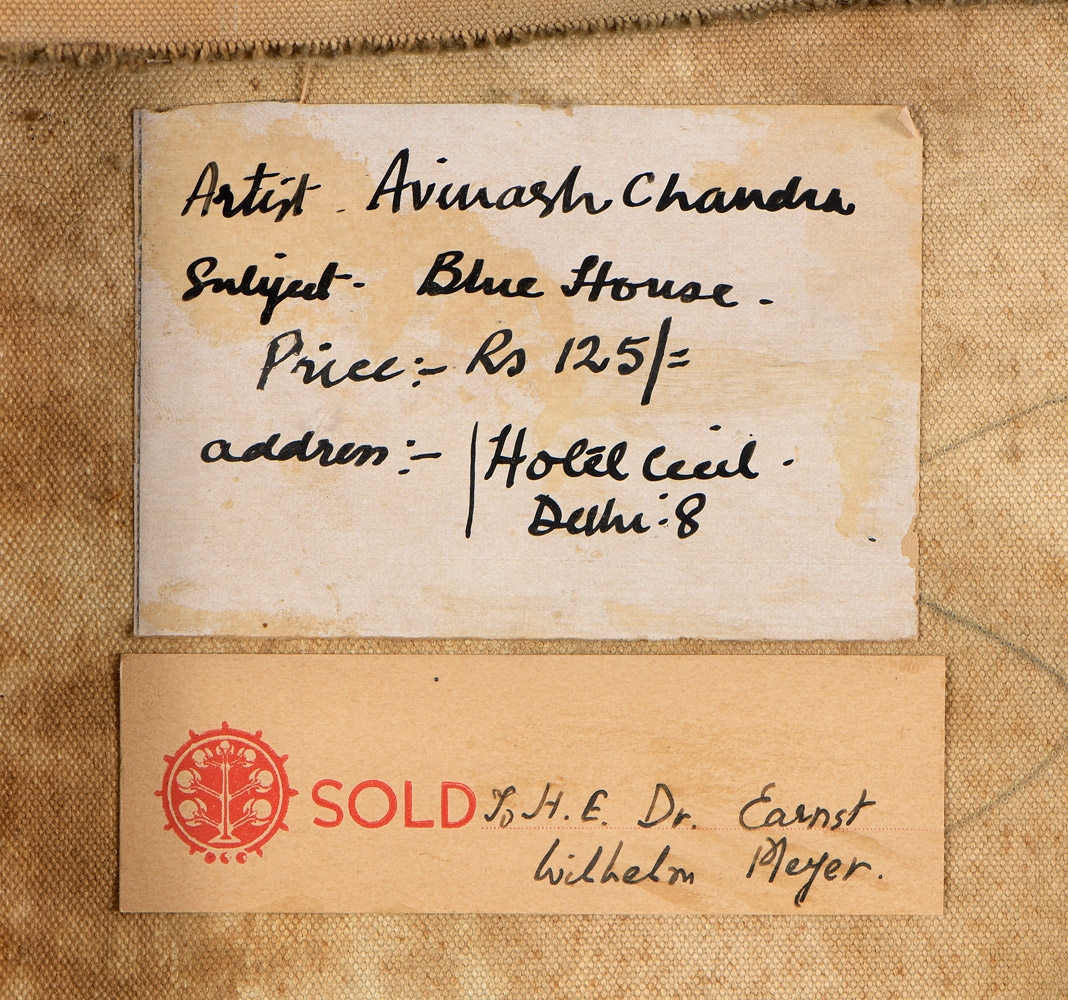 Artist - Avinash Chandra
Subject - Blue House -
Price :- Rs 125/=
address :- | Hotel Cecil -
Delhi : 8
SOLD To H. E. Dr. Earnst
Wilhelm Meyer.